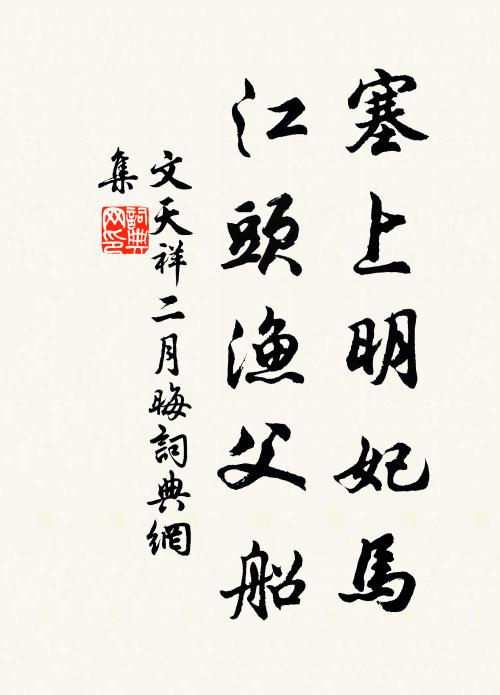 塞上明妃馬
江頭漁父船
文天祥二月晦詞典網
集
詞典
网印